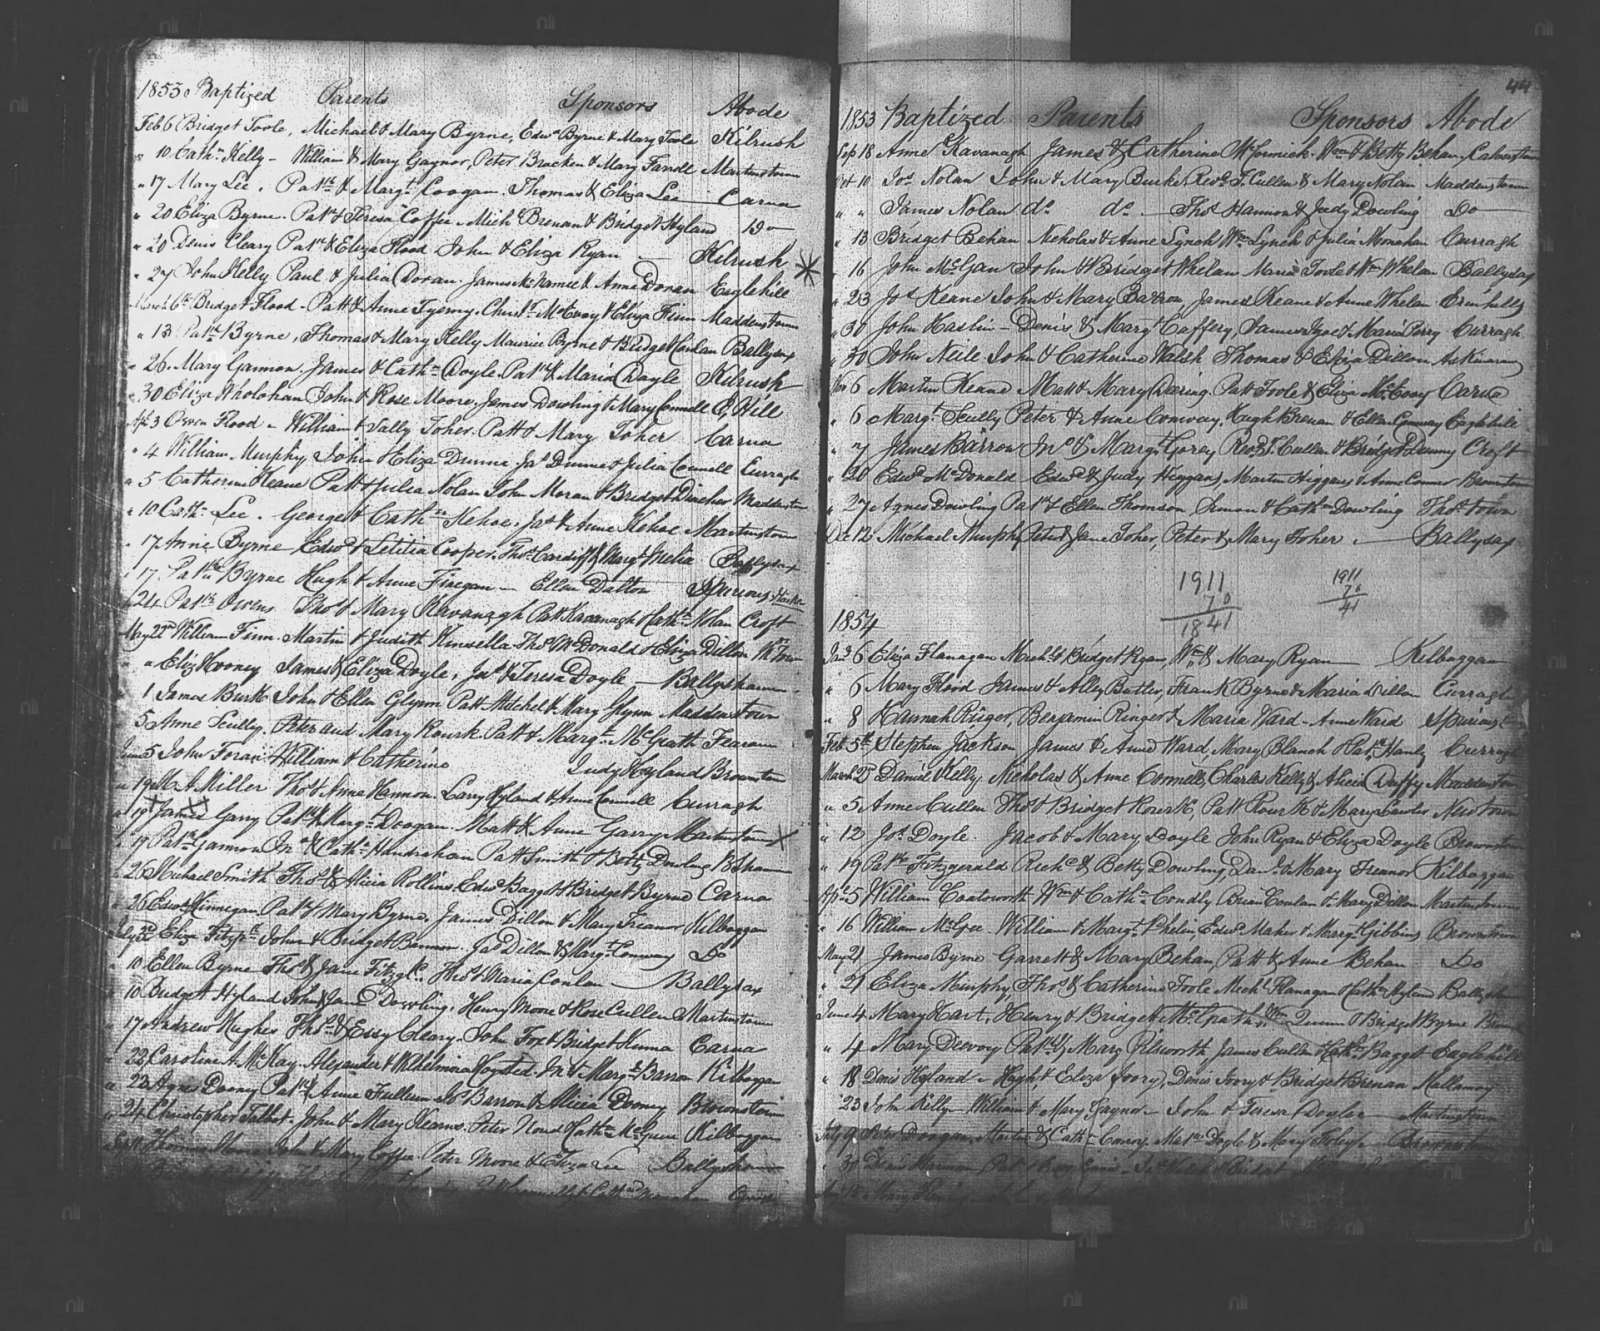 1853 Baptized Parents Sponsors Abode
Feb 6 Bridget Toole, Michael & Mary Byrne, Edwd Byrne & Mary Toole Kilrush
" 10 Cathn Kelly - William & Mary Gaynor, Peter Bracken & Mary Martinstown
" 17 Mary Lee. Patk & Margt Coogan. Thomas & Eliza Lee Carna
" 20 Eliza Byrne. Patk & Teresa Coffee Michl Brenan & Bridget Hyland Do
" 20 Denis Cleary Patk & Eliza Flood John & Eliza Ryan Kilrush
" 27 John Kelly Paul & Julia Doran. James McNamee & Anne Doran Eaglehill
March 6th Bridget Flood - Patt & Anne Tyerny. Christr McEvoy & Eliza Finn Maddenstown
" 13 Patk Byrne, Thomas & Mary Kelly Maurice Byrne & Bridget Conlan Ballysax
" 26. Mary Gannon. James & Cathn Doyle. Patk & Maria Doyle Kilrush
" 30 Eliza Wholohan John & Rose Moore, James Dowling & Mary Connell E. Hill
Apl 3 Owen Flood - William & Sally Toher. Patt & Mary Toher Carna
" 4 William Murphy John & Eliza Dunne Jas Dunne & Julia Connell Curragh
" 5 Catherine Keane Patt & Julia Nolan John Moran & Bridget Maddenstown
" 10 Cathn Lee. George & Cathne Kehoe. Jas & Anne Kehoe Martinstown
" 17 Anne Byrne Edwd & Letitia Cooper. Thos Cardiff & Margt Melia Ballysax
" 17 Patk Byrne Hugh & Anne Finegan - Ellen Dalton Spurious
" 24 Patk Owens Thos & Mary Kavanagh Patt Kavanagh & Cathn Nolan Croft
May 22nd William Finn. Martin & Judith Kinsella Thos McDonald & Eliza Dillon
" " Eliz Hooney James & Eliza Doyle, Jas & Teresa Doyle Ballyshannon
" 1 James Burk John & Ellen Glynn Patt Mitchel & Mary Glynn Maddenstown
" 5 Anne Scully. Peter and Mary Rourk Patt & Margt McGrath
June 5 John Foran William & Catherine Judy Hyland Brownstown
" 19 M. A. Miller Thos & Anne Hannon Larry Hyland & Anne Connell Curragh
" 19 James Garry Patk & Margt Doogan. Matt & Anne Garry Martinstown
" 19 Patk Gannon Jno & Cathn Hundrahan Patt Smith & Betty Dowling
" 26 Michael Smith Thos & Alicia Rollins Edwd Baggot & Bridget Byrne Carna
" 26 Edwd Finnegan Patk & Mary Byrne, James Dillon & Mary Treanor Kilboggan
July 3d Eliza John & Bridget Bannon. Jas Dillon & Margt Conway Do
" 10 Ellen Byrne Thos & Jane Thos & Maria Conlon Ballysax
" 10 Bridget Hyland John & Jane Dowling. Henry Moore & Rose Cullen Martinstown
" 17 Andrew Hughes Thos & Essy Cleary. John Fox & Bridget Carna
" 22 Caroline A. McKay. Alexander & Wilhelmina Jn & Margt Barron Kilboggan
" 22 Agnes Dooney Patk & Anne Fullum Js Barron & Alicia Dooney Brownstown
" 24 Christopher Talbot. John & Mary Kearns. Peter & Cathn Kilboggan
Sept Thomas Moore John & Mary Coffee Peter Moore & Eliza Lee Ballyshannon
44
1853 Baptized Parents Sponsors Abode
Sep 18 Anne Kavanagh James & Catherine McCormick. Wm & Betty Behan
Oct 10 Jos Nolan John & Mary Burke, Revd J. Cullen & Mary Nolan Maddenstown
" " James Nolan do do Thos Hannon & Judy Dowling Do
" 13 Bridget Behan Nicholas & Anne Lynch Wm Lynch & Julia Monahan Curragh
" 16 John McGan John & Bridget Whelan Maria Toole & Wm Whelan Ballysax
" 23 Jos Keane John & Mary Barron, James Keane & Anne Whelan
" 30 John Haslin - Denis & Margt Caffery, James & Maria Perry Curragh
" 30 John Neile John & Catherine Walsh Thomas & Eliza Dillon
Nov 6 Martin Keane Matt & Mary Daring. Patt Toole & Eliza McEvoy Carna
" 6 Margt Scully Peter & Anne Conway. Hugh Brenan & Ellen Conway Eaglehill
" 7 James Barron Jno & Margt Gorey Revd J. Cullen & Bridget Denny Croft
" 20 Edwd McDonald Edwd & Judy Higgans, Martin Higgans & Anne Connor Brownstown
" 27 Agnes Dowling Patk & Ellen Thomson Simon & Cathn Dowling Thostown
Dec 12 Michael Murphy Peter & Jane Toher, Peter & Mary Toher. Ballysax
1911
70
1841
1911
70
41
1854
Jany 6 Eliza Flanagan Michl & Bridget Ryan, Wm & Mary Ryan Kilboggan
" 6 Mary Flood James & Alley Butler, Frank Byrne & Maria Dillon Curragh
" 8 Hannah Ringer, Benjamin Ringer & Maria Ward - Anne Ward Spurious
Feb 5th Stephen Jackson James & Anne Ward, Mary Blanch & Patk Hanly Curragh
March 2d Daniel Kelly. Nicholas & Anne Connell, Charles Kelly & Alicia Duffy Maddenstown
" 5 Anne Cullen Thos & Bridget Rourke, Patt Rourke & Mary Lawler Newtown
" 12 Jos Doyle. Jacob & Mary Doyle John Ryan & Eliza Doyle Brownstown
" 19 Patk Fitzgerald Richd & Betty Dowling, Danl & Mary Treanor Kilboggan
Apl 5 William Coatsworth Wm & Cathn Condly Brian Conlan & Mary Dillon Martinstown
" 16 William McGee. William & Margt Phelin, Edwd Maher & Margt Gibbins Brownstown
May 21 James Byrne Garrett & Mary Behan, Patt & Anne Behan Do
" 21 Eliza Murphy Thos & Catherine Toole Michl Flanagan & Cathn Hyland
June 4 Mary Hart. Henry & Bridget McGrath, Wm Quinn & Bridget Byrne
" 4 Mary Deevoy Patk & Marg Pilsworth James Cullen & Cathn Bagget Eaglehill
" 18 Denis Hyland - Hugh & Eliza Ivory, Denis Ivory & Bridget Brenan
" 23 John Kelly - William & Mary Gaynor - John & Teresa Doyle Martinstown
July 9 Doogan. & Cathn Doyle & Mary Foley Brownstown
" 30 Denis